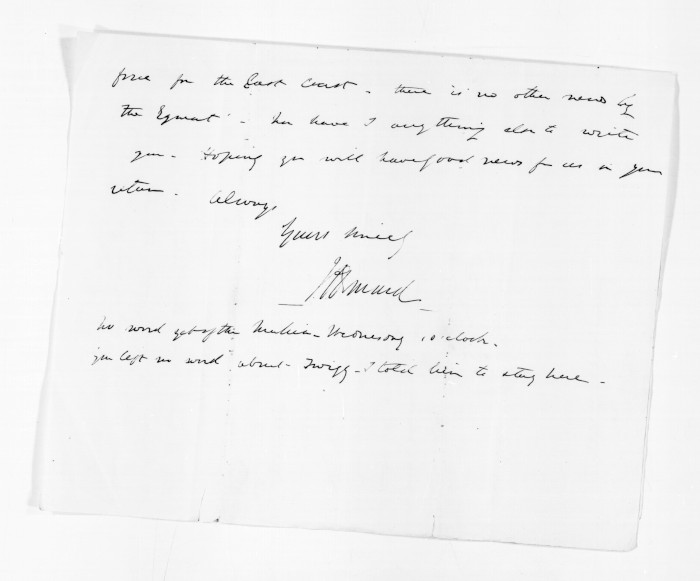 force for the East Coast - there is no other news by
the Egmont - nor have I anything else to write
you - Hoping you will have good news for us on your
return. Always
Yours sincely
J D Ormond
No word yet of the - Wednesday 10 o'clock.
you left no word about - Twigg - I told him to stay here -